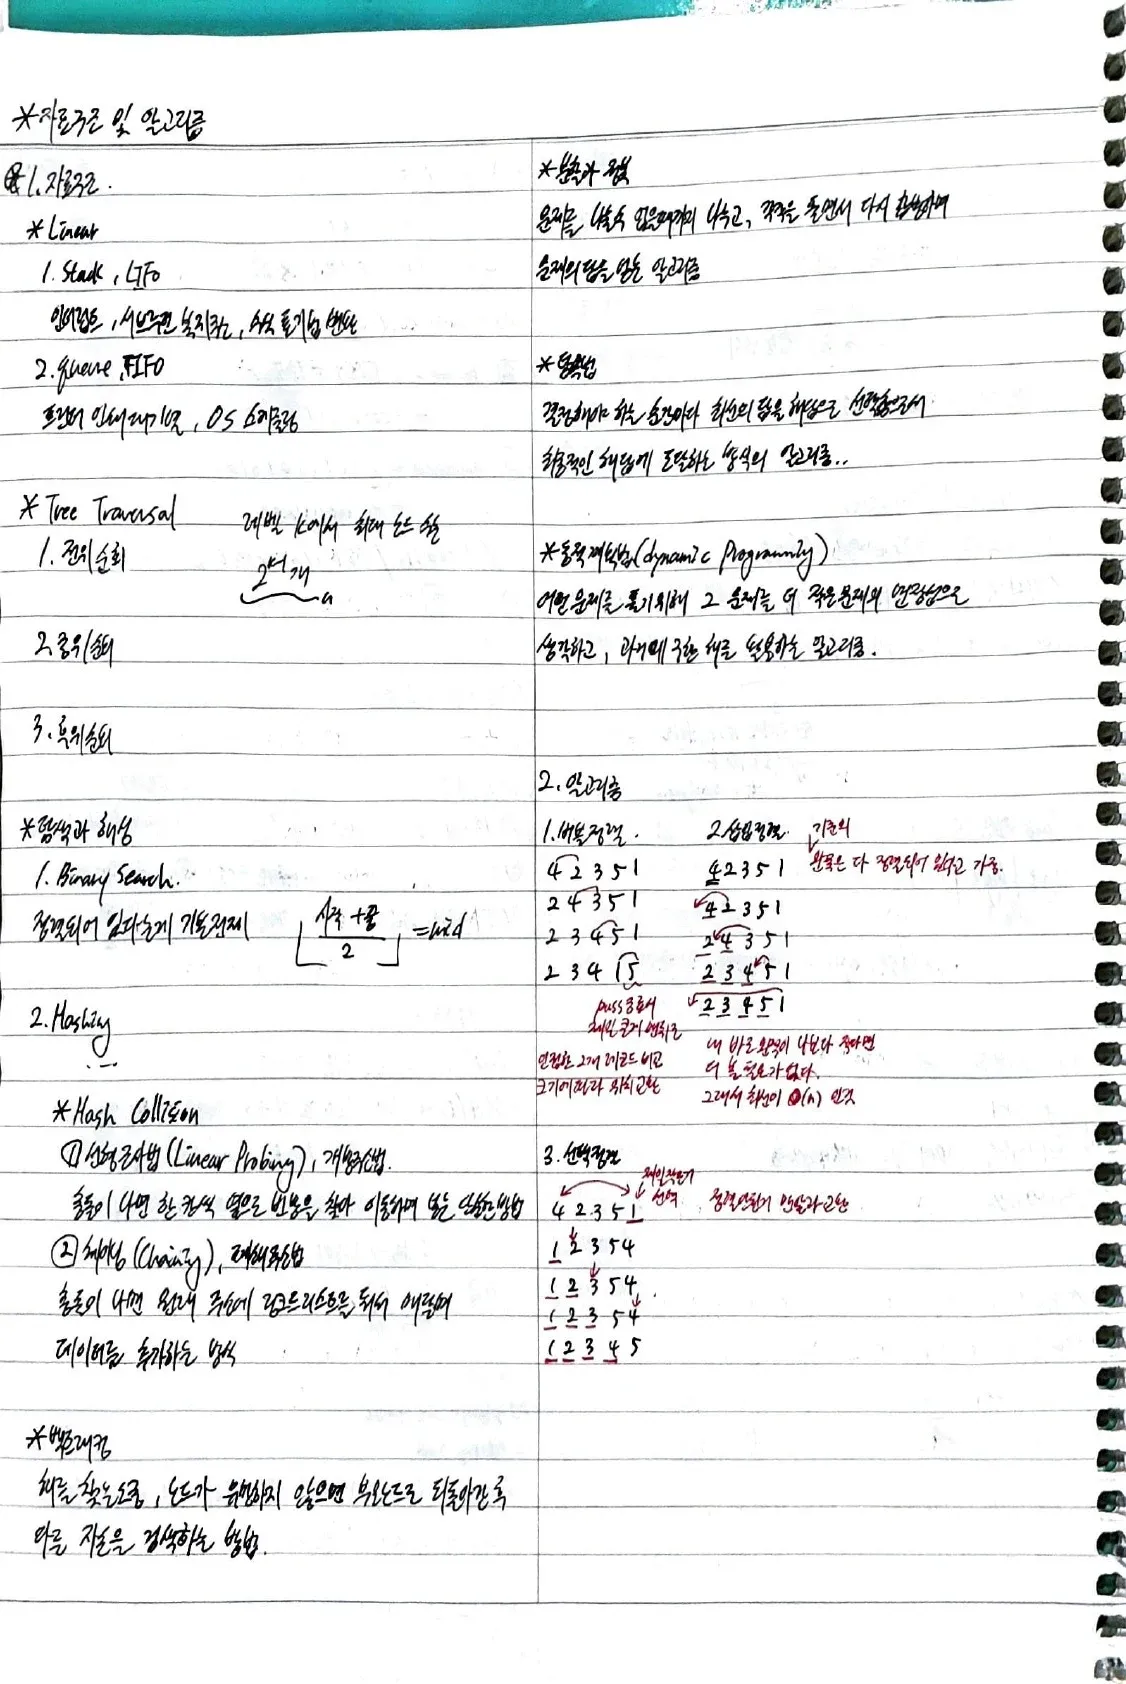 *자료구조 및 알고리즘
1. 자료구조.
* Linear
1. Stack, LIFO
인터럽트, 서브루틴 복귀주소, 수식 표기법 변환
2. Queue, FIFO
프린터 인쇄 대기열, OS 스케줄링
* Tree Traversal
레벨 k에서 최대 노드 수는
1. 전위순회
2^k-1 개
2. 중위순회
3. 후위순회
*탐색과 해싱
1. Binary Search.
정렬되어 있다는게 기본전제
시작+끝
2
=mid
2. Hashing
* Hash Collision
① 선형조사법(Linear Probing), 개방주소법.
충돌이 나면 한 칸씩 옆으로 빈 공간을 찾아 이동하며 넣는 단순한 방법
② 체이닝(Chaining), 폐쇄주소법
충돌이 나면 원래 주소에 링크드리스트를 둬서 매달며
데이터를 추가하는 방식
*백트래킹
해를 찾는도중, 노드가 유망하지 않으면 부모노드로 되돌아간 후
다른 자손을 검색하는 방법.
*분할과 정복
문제를 나눌 수 없을때까지 나누고, 각각을 풀면서 다시 합병하며
문제의 답을 얻는 알고리즘
*탐욕법
결정해야 하는 순간마다 최선의 답을 해답으로 선택함으로써
최종적인 해답에 도달하는 방식의 알고리즘..
*동적계획법(dynamic Programming)
어떤 문제를 풀기위해 그 문제를 더 작은문제의 연장선으로
생각하고, 과거에 구한 해를 활용하는 알고리즘.
2. 알고리즘
1. 버블정렬.
4 2 3 5 1
2 4 3 5 1
2 3 4 5 1
2 3 4 1 5
pass종료시
제일 큰게 맨뒤로
인접한 2개 레코드 비교
크기에 따라 위치교환
2. 삽입정렬.
기준의
왼쪽은 다 정렬되어 있다고 가정.
4 2 3 5 1
4 2 3 5 1
2 4 3 5 1
2 3 4 5 1
2 3 4 5 1
내 바로 왼쪽이 나보다 작다면
더 볼 필요가 없다.
그래서 최선이 O(n) 인것
3. 선택정렬
제일작은거
선택
정렬안된거 맨앞과 교환
4 2 3 5 1
1 2 3 5 4
1 2 3 5 4
1 2 3 5 4
1 2 3 4 5